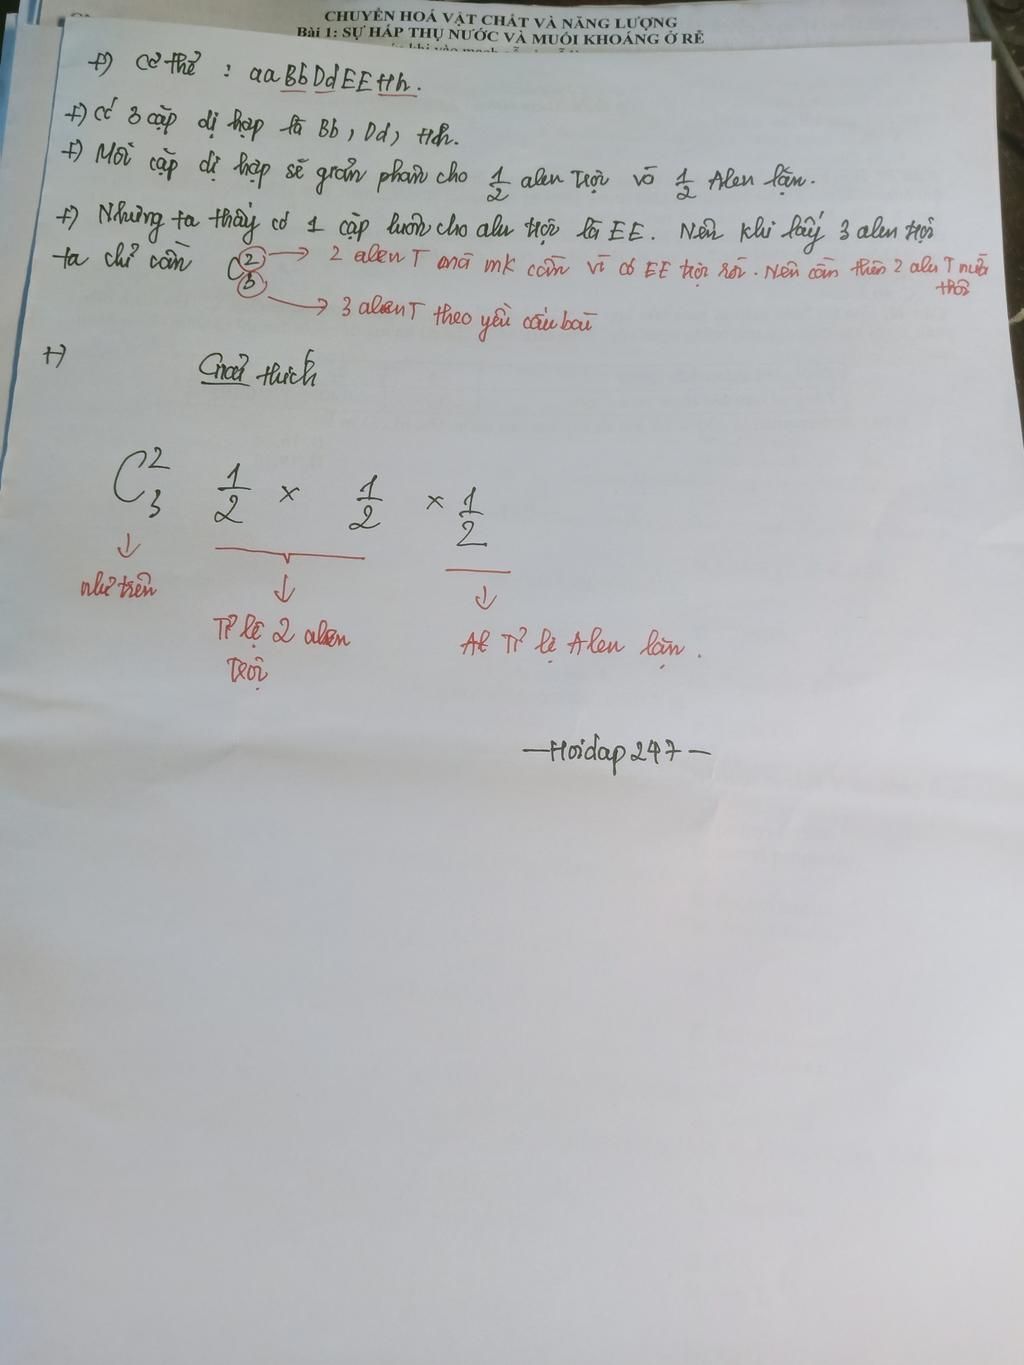 CHUYỂN HOÁ VẬT CHẤT VÀ NĂNG LƯỢNG
Bài 1: SỰ HẤP THỤ NƯỚC VÀ MUỐI KHOÁNG Ở RỄ
+) Cơ thể : aaBbDdEEHh.
+) Có 3 cặp dị hợp là Bb, Dd, Hh.
+) Mỗi cặp dị hợp sẽ giảm phân cho 1/2 alen trội và 1/2 Alen lặn.
+) Nhưng ta thấy có 1 cặp luôn cho alen trội là EE. Nên khi lấy 3 alen trội
ta chỉ cần C 2 3 → 2 alen T mà mk cần vì có EE trội rồi. Nên cần thêm 2 alen T nữa
thôi
→ 3 alen T theo yêu cầu bài
+)
Giải thích
C 2 3 1/2 × 1/2 × 1/2
như trên
Tỉ lệ 2 alen
trội
Tỉ lệ Alen lặn.
—Hoidap247—